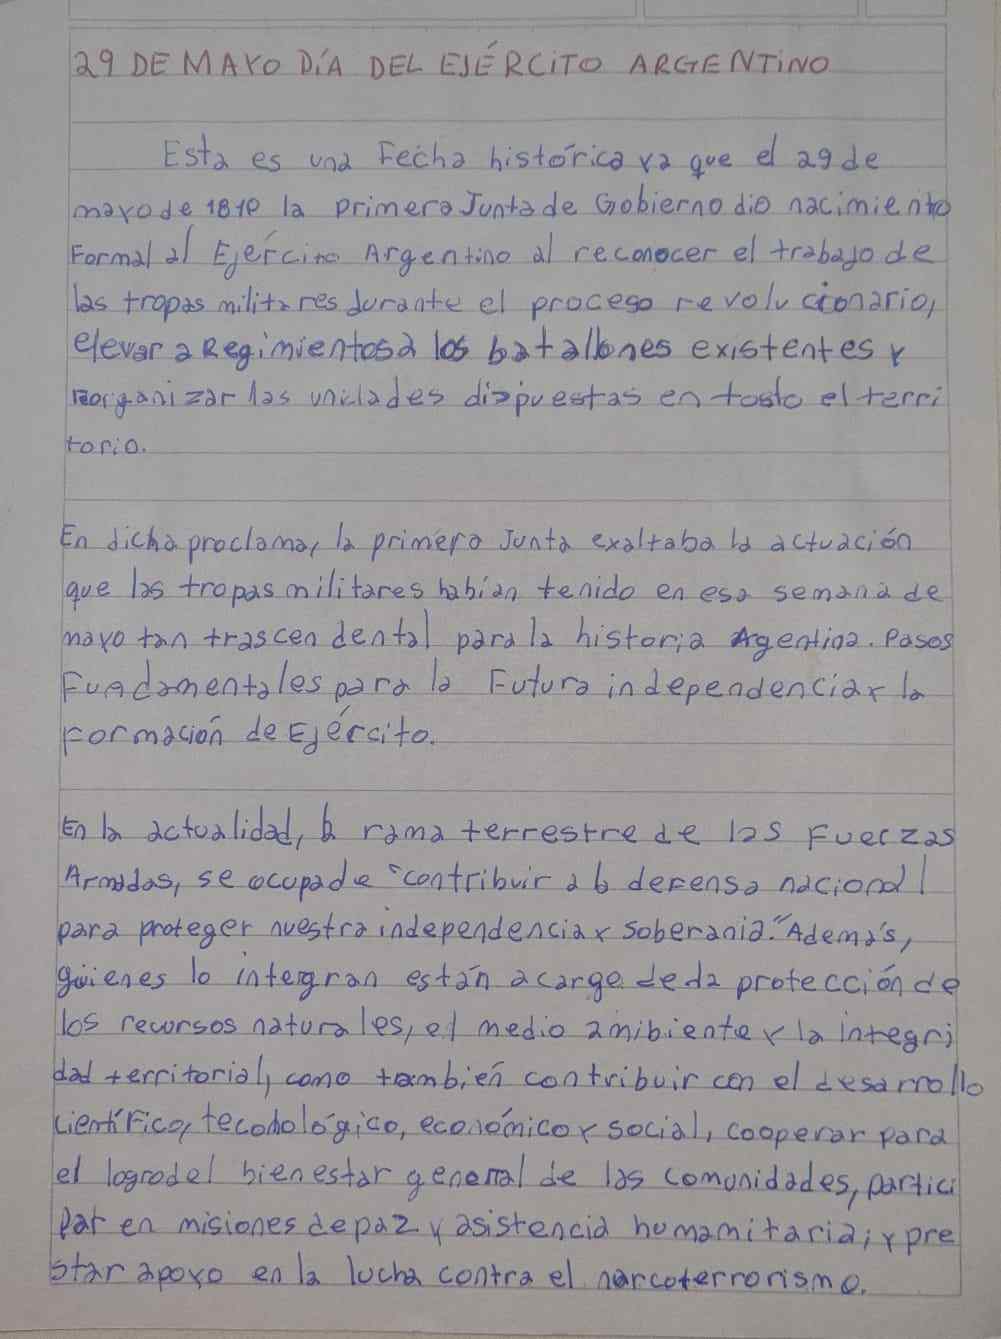 29 DE MAYO DÍA DEL EJÉRCITO ARGENTINO
Esta es una Fecha histórica ya que el 29 de
mayo de 1810 la primera Junta de Gobierno dio nacimiento
Formal al Ejército Argentino al reconocer el trabajo de
las tropas militares durante el proceso revolucionario,
elevar a Regimientos a los batallones existentes y
reorganizar las unidades dispuestas en todo el terri
torio.
En dicha proclama, la primera Junta exaltaba la actuación
que las tropas militares habían tenido en esa semana de
mayo tan trascendental para la historia Argentina. Pasos
Fundamentales para la Futura independencia y la
Formación de Ejército.
En la actualidad, la rama terrestre de las Fuerzas
Armadas, se ocupa de "contribuir a la defensa nacional
para proteger nuestra independencia y soberanía." Además,
quienes lo integran están a cargo de la protección de
los recursos naturales, el medio amibiente y la integri
dad territorial, como también contribuir con el desarrollo
científico, tecnológico, económico y social, cooperar para
el logro del bienestar general de las comunidades, partici
par en misiones de paz y asistencia humanitaria; y pre
star apoyo en la lucha contra el narcoterrorismo.